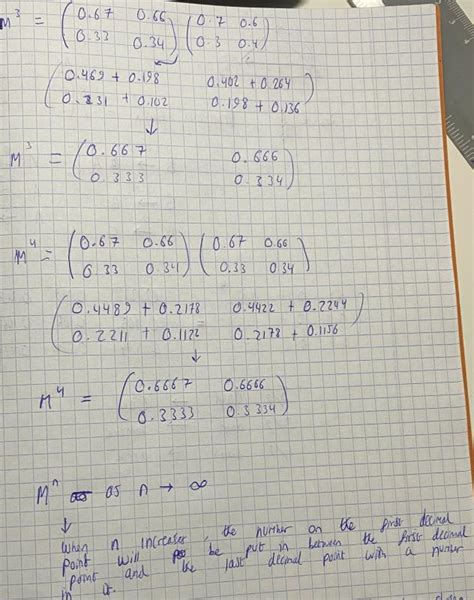 M³ = (0.67 0.66 0.33 0.34) (0.7 0.6 0.3 0.4)
(0.469 + 0.198 0.402 + 0.264
0.231 + 0.102 0.198 + 0.136)
↓
M³ = (0.667 0.666
0.333 0.334)
M⁴ = (0.67 0.66 0.33 0.34) (0.67 0.66 0.33 0.34)
(0.4489 + 0.2178 0.4422 + 0.2244
0.2211 + 0.1122 0.2178 + 0.1156)
↓
M⁴ = (0.6667 0.6666
0.3333 0.3334)
Mⁿ as n → ∞
↓
When n increases, the number on the first decimal
point will be put in between the first decimal
point and the last decimal point with a number
in it.